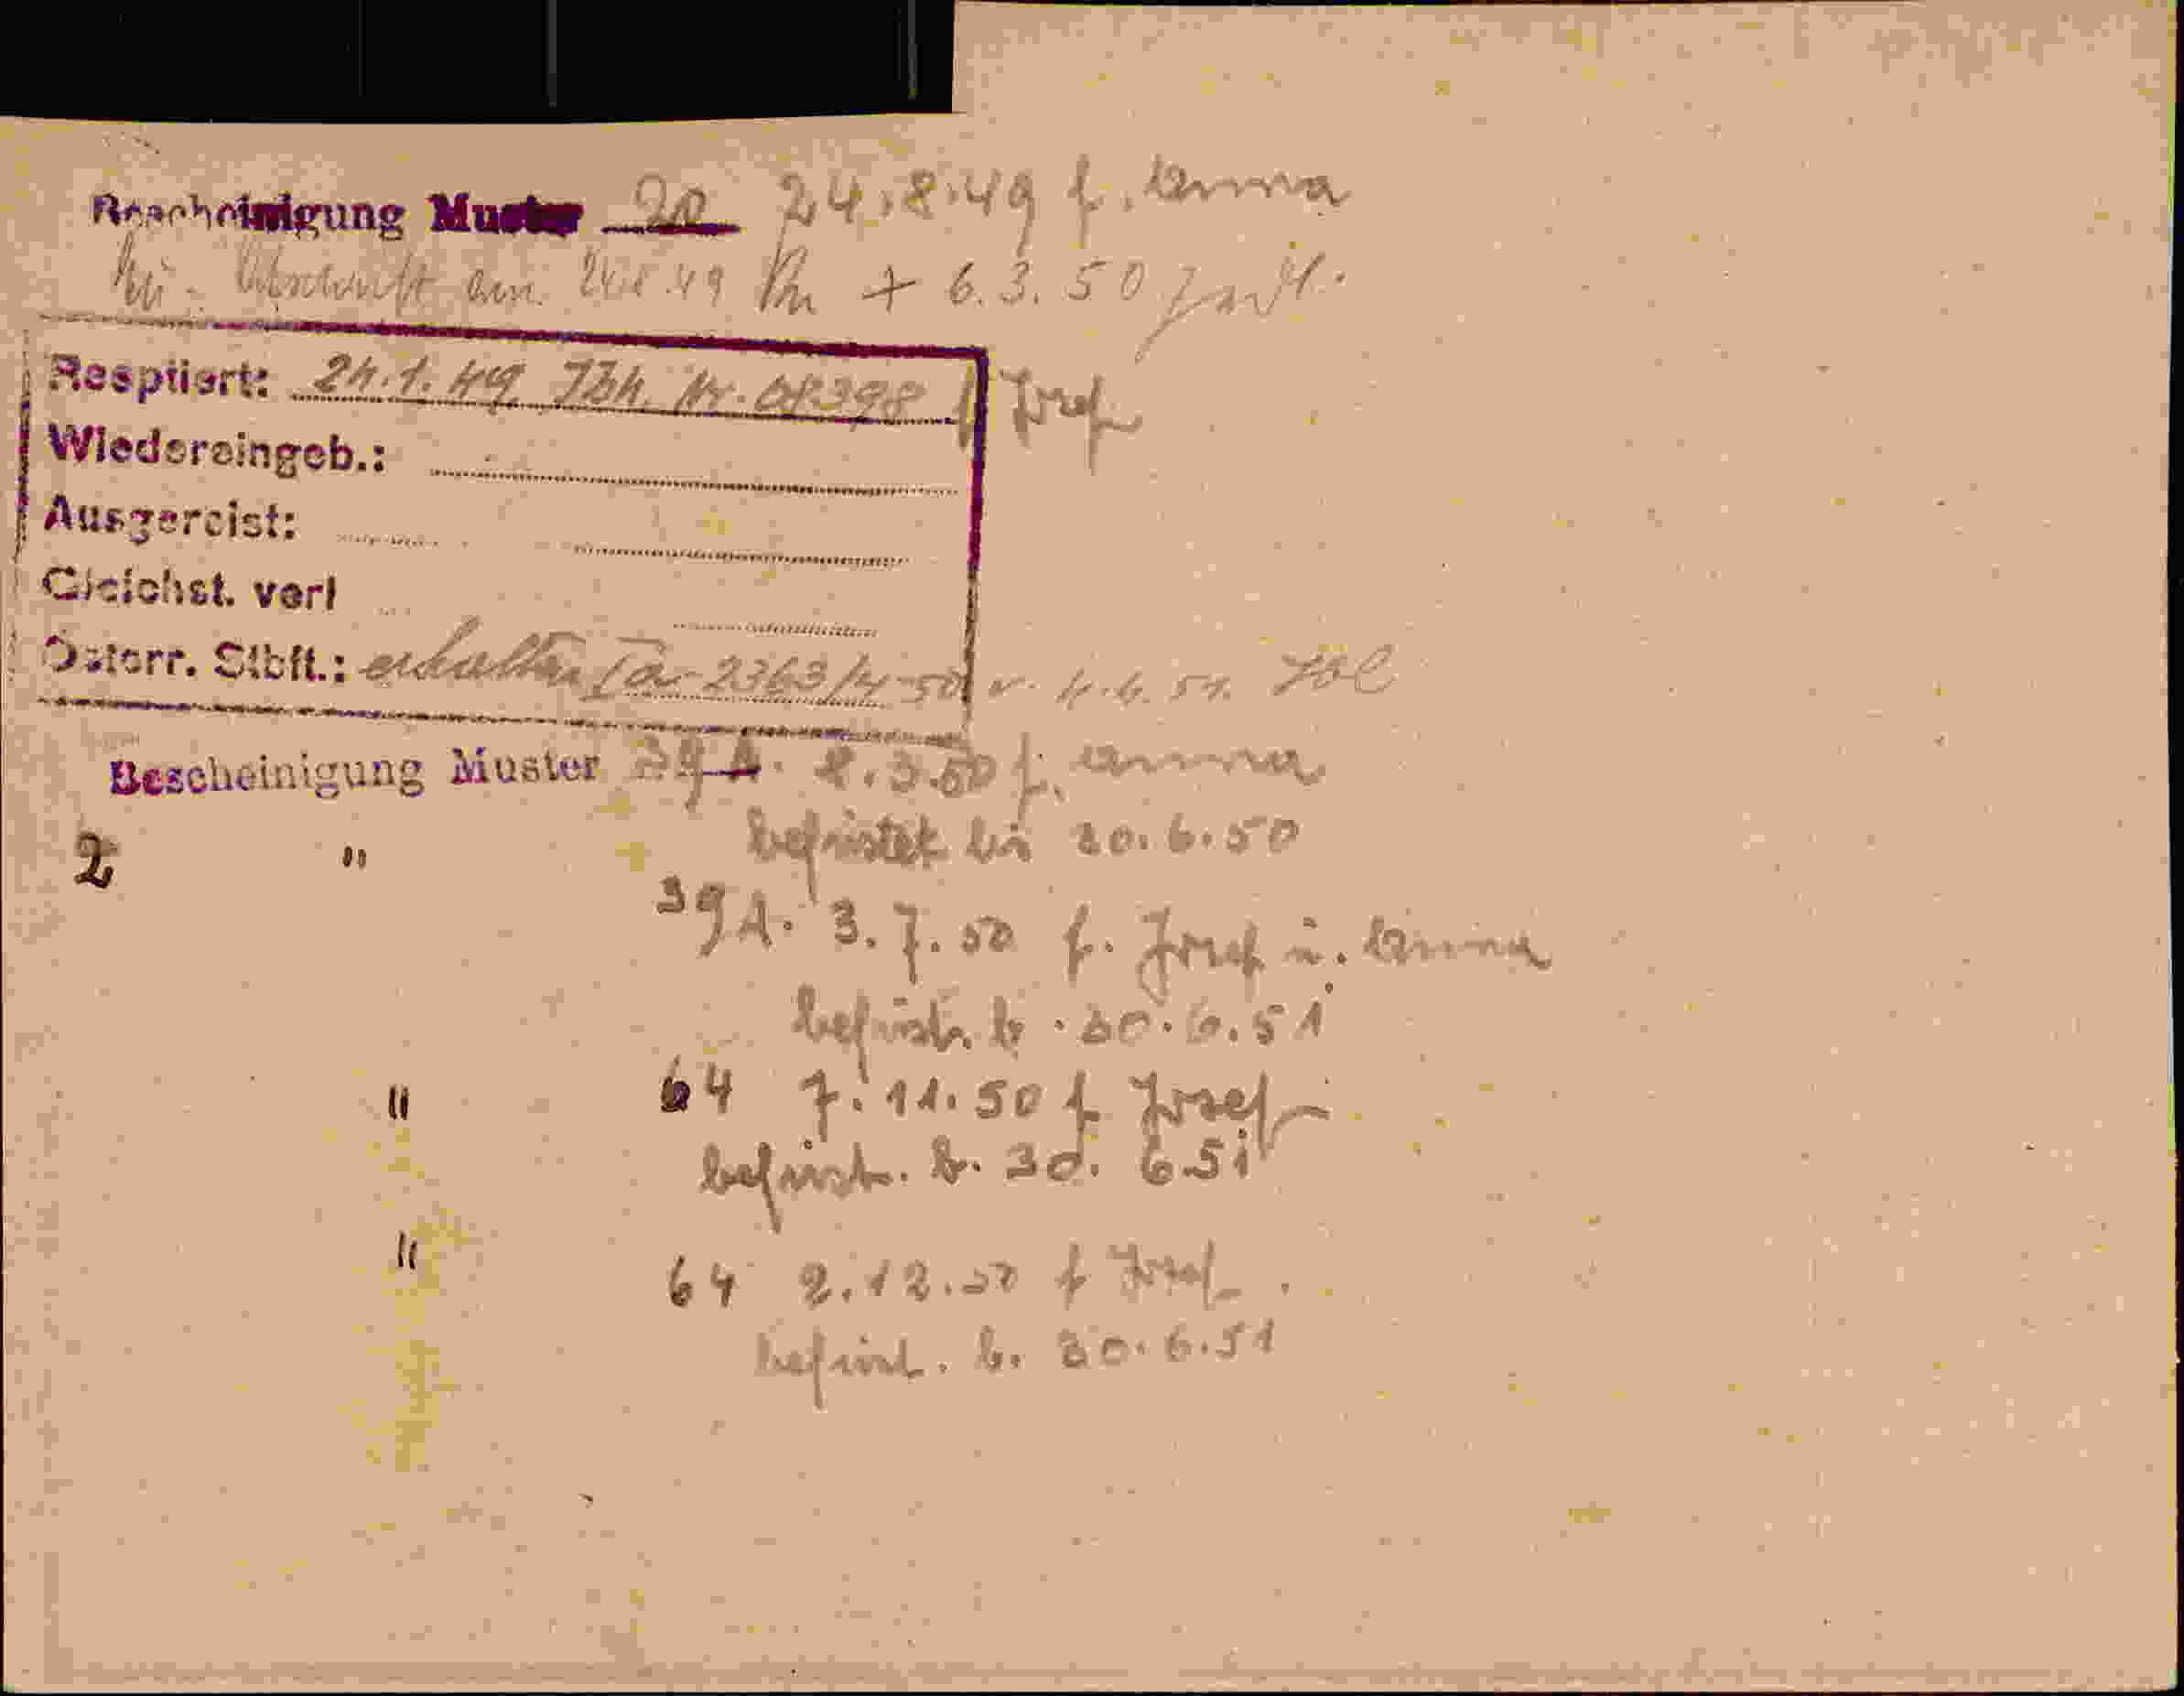 Bescheinigung Muster 20 24.8.49 f. Anna
Abschrift am 24.8.49 + 6.3.50
Resptiert: 24.1.49. Tbh. Nr. 08398 f Josef
Wiedereingeb.:
Ausgereist:
Gleichst. verl
Österr. Stbft.: erhalten Ia-2363/4-50 v. 4.6.51.
Bescheinigung Muster 39 A. 2.3.50 f. Anna
befristet bis 30.6.50
2 " 39 A. 3.7.50 f. Josef u. Anna
befrist. b. 30.6.51
" 64 7.11.50 f Josef
befrist. b. 30. 6 51
" 64 2.12.50 f Josef
befrist. b. 30.6.51